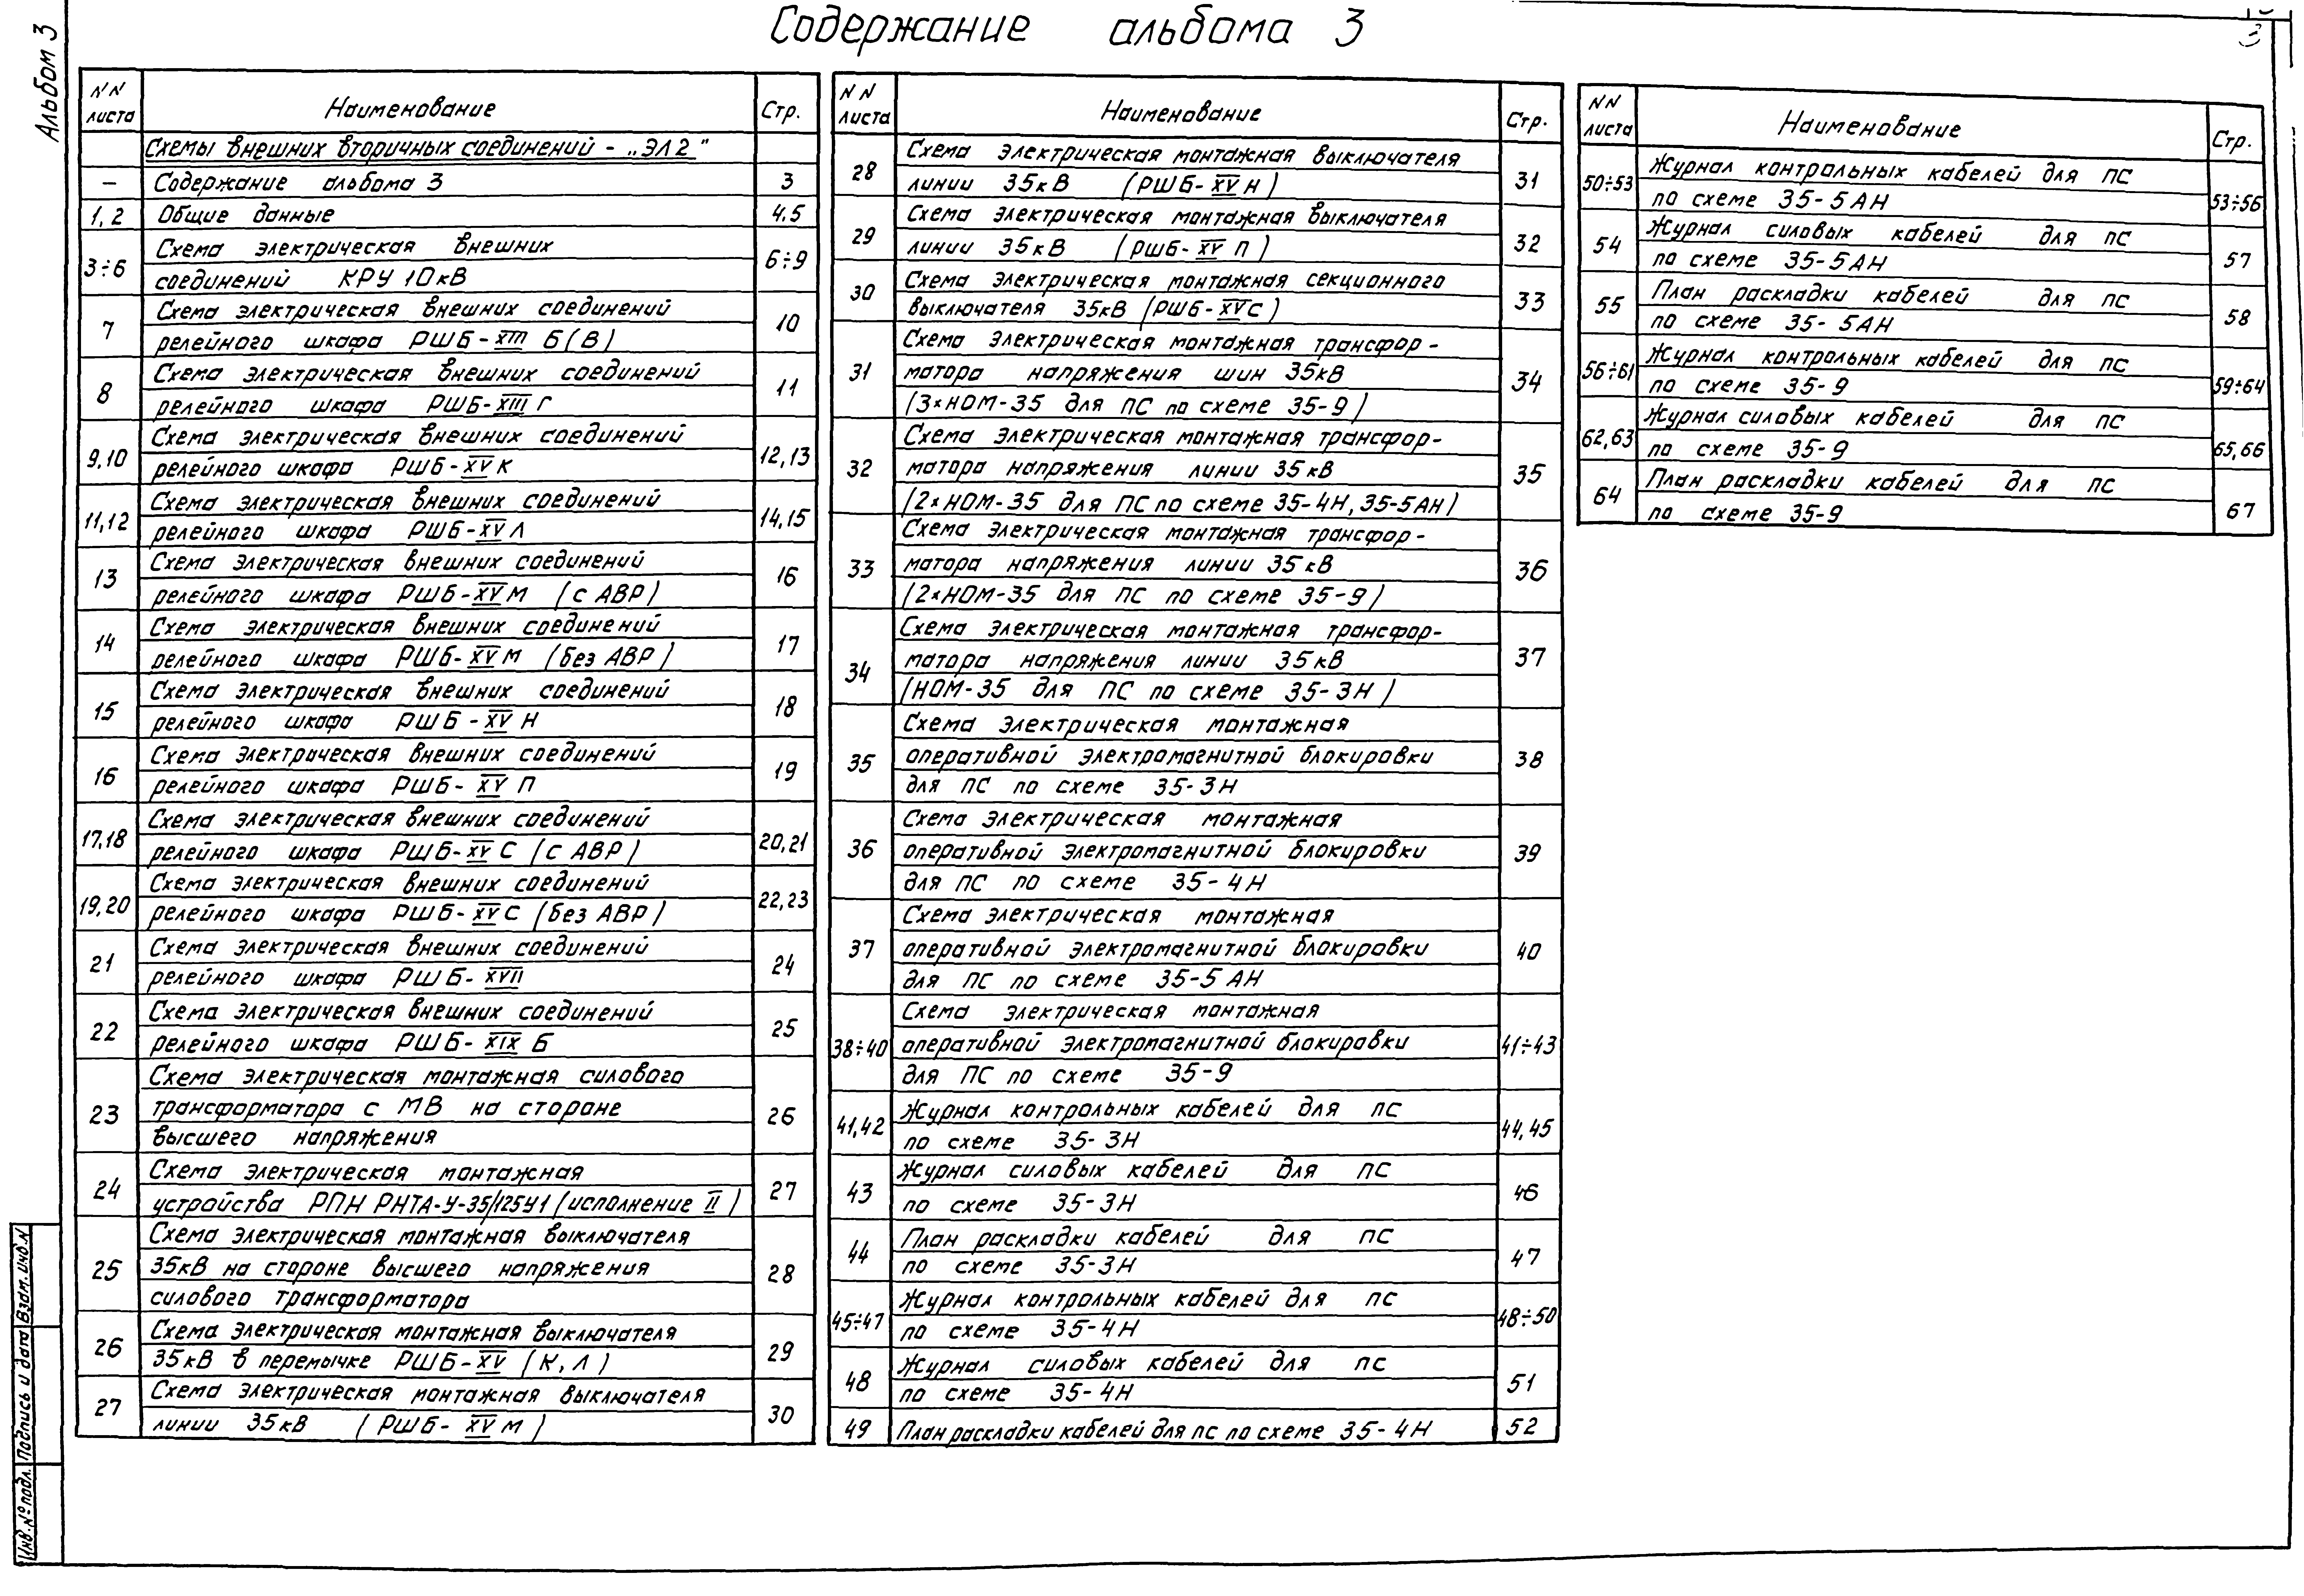 Содержание альбома 3
3
Альбом 3
NN листа Наименование Стр.
Схемы внешних вторичных соединений - „ЭЛ2"
— Содержание альбома 3 3
1, 2 Общие данные 4,5
3÷6 Схема электрическая внешних 6÷9
соединений КРУ 10кВ
7 Схема электрическая внешних соединений 10
релейного шкафа РШБ-XIII Б(В)
8 Схема электрическая внешних соединений 11
релейного шкафа РШБ-XIII Г
9,10 Схема электрическая внешних соединений 12,13
релейного шкафа РШБ-XV К
11,12 Схема электрическая внешних соединений 14,15
релейного шкафа РШБ-XV Л
13 Схема электрическая внешних соединений 16
релейного шкафа РШБ-XV М (с АВР)
14 Схема электрическая внешних соединений 17
релейного шкафа РШБ-XV М (без АВР)
15 Схема электрическая внешних соединений 18
релейного шкафа РШБ-XV Н
16 Схема электрическая внешних соединений 19
релейного шкафа РШБ-XV П
17,18 Схема электрическая внешних соединений 20,21
релейного шкафа РШБ-XV С (с АВР)
19,20 Схема электрическая внешних соединений 22,23
релейного шкафа РШБ-XV С (без АВР)
21 Схема электрическая внешних соединений 24
релейного шкафа РШБ-XVII
22 Схема электрическая внешних соединений 25
релейного шкафа РШБ-XIX Б
23 Схема электрическая монтажная силового 26
трансформатора с МВ на стороне
высшего напряжения
24 Схема электрическая монтажная 27
устройства РПН РНТА-У-35/125У1 (исполнение II)
25 Схема электрическая монтажная выключателя 28
35кВ на стороне высшего напряжения
силового трансформатора
26 Схема электрическая монтажная выключателя 29
35кВ в перемычке РШБ-XV (К, Л)
27 Схема электрическая монтажная выключателя 30
линии 35кВ (РШБ-XV М)
NN листа Наименование Стр.
28 Схема электрическая монтажная выключателя 31
линии 35кВ (РШБ-XV Н)
29 Схема электрическая монтажная выключателя 32
линии 35кВ (РШБ-XV П)
30 Схема электрическая монтажная секционного 33
выключателя 35кВ (РШБ-XVС)
31 Схема электрическая монтажная трансфор- 34
матора напряжения шин 35кВ
(3×НОМ-35 для ПС по схеме 35-9)
32 Схема электрическая монтажная трансфор- 35
матора напряжения линии 35кВ
(2×НОМ-35 для ПС по схеме 35-4Н, 35-5АН)
33 Схема электрическая монтажная трансфор- 36
матора напряжения линии 35кВ
(2×НОМ-35 для ПС по схеме 35-9)
34 Схема электрическая монтажная трансфор- 37
матора напряжения линии 35кВ
(НОМ-35 для ПС по схеме 35-3Н)
35 Схема электрическая монтажная 38
оперативной электромагнитной блокировки
для ПС по схеме 35-3Н
36 Схема электрическая монтажная 39
оперативной электромагнитной блокировки
для ПС по схеме 35-4Н
37 Схема электрическая монтажная 40
оперативной электромагнитной блокировки
для ПС по схеме 35-5АН
38÷40 Схема электрическая монтажная 41÷43
оперативной электромагнитной блокировки
для ПС по схеме 35-9
41,42 Журнал контрольных кабелей для ПС 44,45
по схеме 35-3Н
43 Журнал силовых кабелей для ПС 46
по схеме 35-3Н
44 План раскладки кабелей для ПС 47
по схеме 35-3Н
45÷47 Журнал контрольных кабелей для ПС 48÷50
по схеме 35-4Н
48 Журнал силовых кабелей для ПС 51
по схеме 35-4Н
49 План раскладки кабелей для ПС по схеме 35-4Н 52
NN листа Наименование Стр.
50÷53 Журнал контрольных кабелей для ПС 53÷56
по схеме 35-5АН
54 Журнал силовых кабелей для ПС 57
по схеме 35-5АН
55 План раскладки кабелей для ПС 58
по схеме 35-5АН
56÷61 Журнал контрольных кабелей для ПС 59÷64
по схеме 35-9
62,63 Журнал силовых кабелей для ПС 65,66
по схеме 35-9
64 План раскладки кабелей для ПС 67
по схеме 35-9
Инв.№ подл. Подпись и дата Взам.инв.N